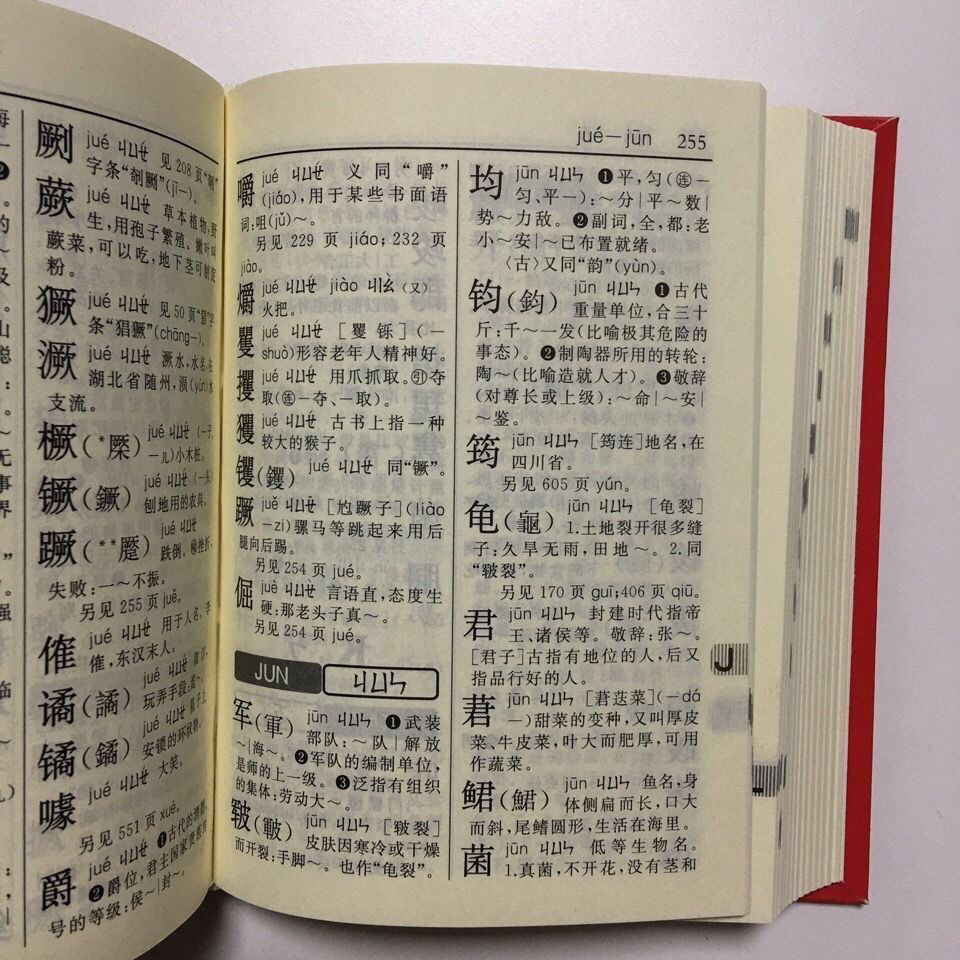 劂 jué ㄐㄩㄝ 见 208 页“剞”
字条“剞劂”(jī—)。
蕨 jué ㄐㄩㄝ 草本植物,野
生,用孢子繁殖。嫩叶叫
蕨菜,可以吃,地下茎可制淀
粉。
獗 jué ㄐㄩㄝ 见 50 页“猖”字
条“猖獗”(chāng—)。
㵐 jué ㄐㄩㄝ 㵐水,水名,在
湖北省随州,涢(yún)水
支流。
橛(*橜) jué ㄐㄩㄝ (—子、
—儿)小木桩。
镢(鐝) jué ㄐㄩㄝ (—头)
刨地用的农具。
蹶(**蹷) jué ㄐㄩㄝ
跌倒。喻挫折,
失败:一～不振。
另见 255 页 juě。
傕 jué ㄐㄩㄝ 用于人名,李
傕,东汉末人。
谲(譎) jué ㄐㄩㄝ
玩弄手段
镢(鐍) jué ㄐㄩㄝ
安锁的环状物。
噱 jué ㄐㄩㄝ 大笑。
另见 551 页 xué。
爵 jué ㄐㄩㄝ ❶古代的酒器。
❷爵位,君主国家贵族
号的等级:侯～|封～。
jué—jūn 255
嚼 jué ㄐㄩㄝ 义同“嚼”
(jiáo),用于某些书面语
词:咀(jǔ)～。
另见 229 页 jiáo;232 页
jiào。
爝 jué ㄐㄩㄝ jiào ㄐㄧㄠ(又)
火把。
矍 jué ㄐㄩㄝ [矍铄](—
shuò)形容老年人精神好。
攫 jué ㄐㄩㄝ 用爪抓取。㊕夺
取(㊓—夺、—取)。
玃 jué ㄐㄩㄝ 古书上指一种
较大的猴子。
䦆(钁) jué ㄐㄩㄝ 同“镢”。
蹶 juě ㄐㄩㄝˇ [尥蹶子](liào
—zi)骡马等跳起来用后
腿向后踢。
另见 254 页 jué。
倔 juè ㄐㄩㄝˋ 言语直,态度生
硬:那老头子真～。
另见 254 页 jué。
JUN ㄐㄩㄣ
军(軍) jūn ㄐㄩㄣ ❶武装
部队:～队|解放
～|海～。❷军队的编制单位,
是师的上一级。❸泛指有组织
的集体:劳动大～。
皲(皸) jūn ㄐㄩㄣ [皲裂]
皮肤因寒冷或干燥
而开裂:手脚～。也作“龟裂”。
均 jūn ㄐㄩㄣ ❶平,匀(㊓—
匀、平—):～分|平～数|
势～力敌。❷副词,全,都:老
小～安|～已布置就绪。
〈古〉又同“韵”(yùn)。
钧(鈞) jūn ㄐㄩㄣ ❶古代
重量单位,合三十
斤:千～一发(比喻极其危险的
事态)。❷制陶器所用的转轮:
陶～(比喻造就人才)。❸敬辞
(对尊长或上级):～命|～安|
～鉴。
筠 jūn ㄐㄩㄣ [筠连]地名,在
四川省。
另见 605 页 yún。
龟(龜) jūn ㄐㄩㄣ [龟裂]
1.土地裂开很多缝
子:久旱无雨,田地～。2.同
“皲裂”。
另见 170 页 guī;406 页 qiū。
君 jūn ㄐㄩㄣ 封建时代指帝
王、诸侯等。敬辞:张～。
[君子]古指有地位的人,后又
指品行好的人。
莙 jūn ㄐㄩㄣ [莙荙菜](—dá
—)甜菜的变种,又叫厚皮
菜、牛皮菜,叶大而肥厚,可用
作蔬菜。
鲪(鮶) jūn ㄐㄩㄣ 鱼名,身
体侧扁而长,口大
而斜,尾鳍圆形,生活在海里。
菌 jūn ㄐㄩㄣ 低等生物名。
1.真菌,不开花,没有茎和
J
L